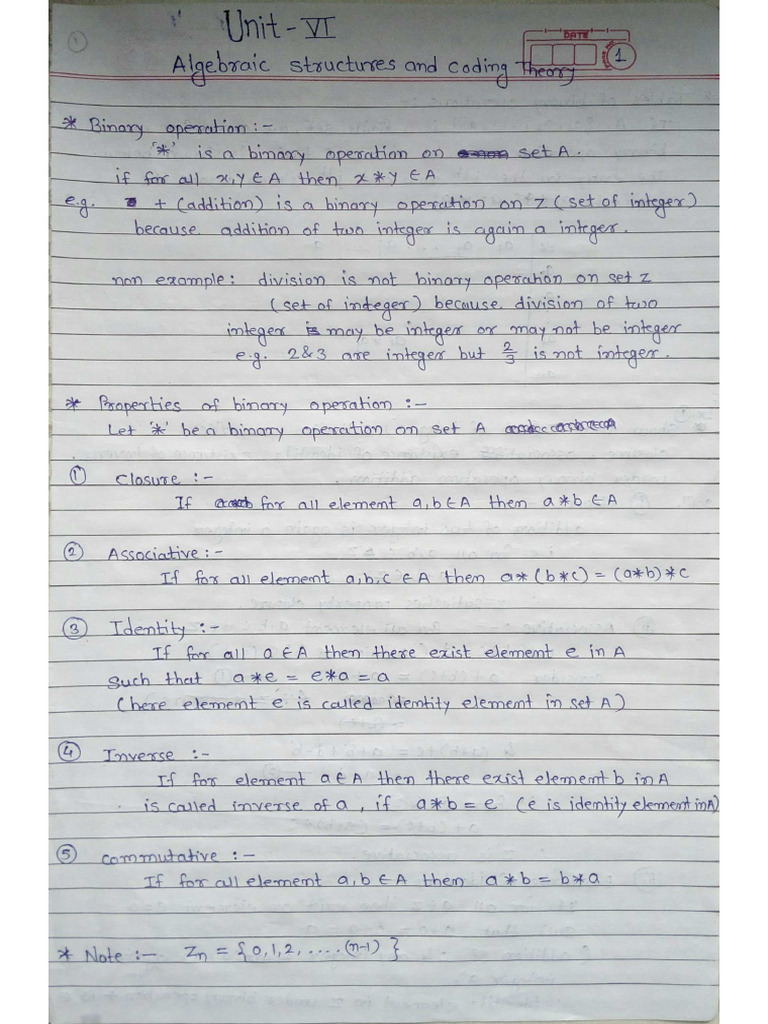 Unit - VI
DATE
1
Algebraic structures and coding Theory
* Binary operation :-
'*' is a binary operation on set A.
if for all x,y ∈ A then x * y ∈ A
e.g. + (addition) is a binary operation on Z (set of integer)
because addition of two integer is again a integer.
non example: division is not binary operation on set Z
(set of integer) because division of two
integer is may be integer or may not be integer
e.g. 2 & 3 are integer but 2/3 is not integer.
* Properties of binary operation :-
Let '*' be a binary operation on set A
① Closure :-
If for all element a, b ∈ A then a * b ∈ A
② Associative :-
If for all element a, b, c ∈ A then a * (b * c) = (a * b) * c
③ Identity :-
If for all a ∈ A then there exist element e in A
such that a * e = e * a = a
(here element e is called identity element in set A)
④ Inverse :-
If for element a ∈ A then there exist element b in A
is called inverse of a, if a * b = e (e is identity element in A)
⑤ commutative :-
If for all element a, b ∈ A then a * b = b * a
* Note :- Zn = {0, 1, 2, ..... (n-1)}